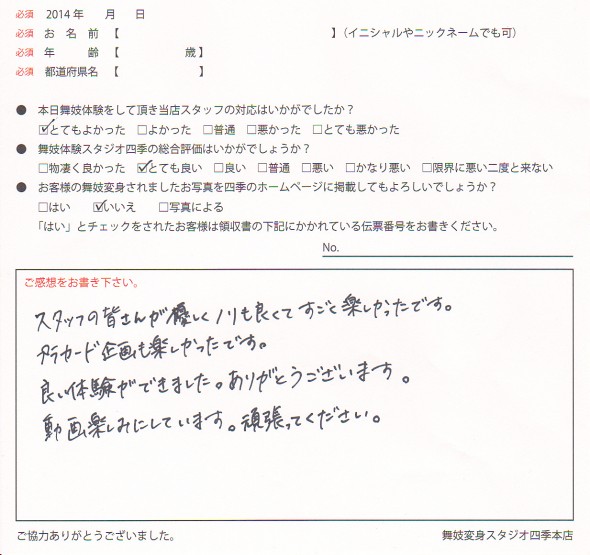 必須 2014年 月 日
必須 お名前 【 】（イニシャルやニックネームでも可）
必須 年齢 【 歳】
必須 都道府県名 【 】
● 本日舞妓体験をして頂き当店スタッフの対応はいかがでしたか？
☑とてもよかった □よかった □普通 □悪かった □とても悪かった
● 舞妓体験スタジオ四季の総合評価はいかがでしょうか？
□物凄く良かった ☑とても良い □良い □普通 □悪い □かなり悪い □限界に悪い二度と来ない
● お客様の舞妓変身されましたお写真を四季のホームページに掲載してもよろしいでしょうか？
□はい ☑いいえ □写真による
「はい」とチェックをされたお客様は領収書の下記にかかれている伝票番号をお書きください。
No.
ご感想をお書き下さい。
スタッフの皆さんが優しくノリも良くてすごく楽しかったです。
プラカード企画も楽しかったです。
良い体験ができました。ありがとうございます。
動画楽しみにしています。頑張ってください。
ご協力ありがとうございました。 舞妓変身スタジオ四季本店